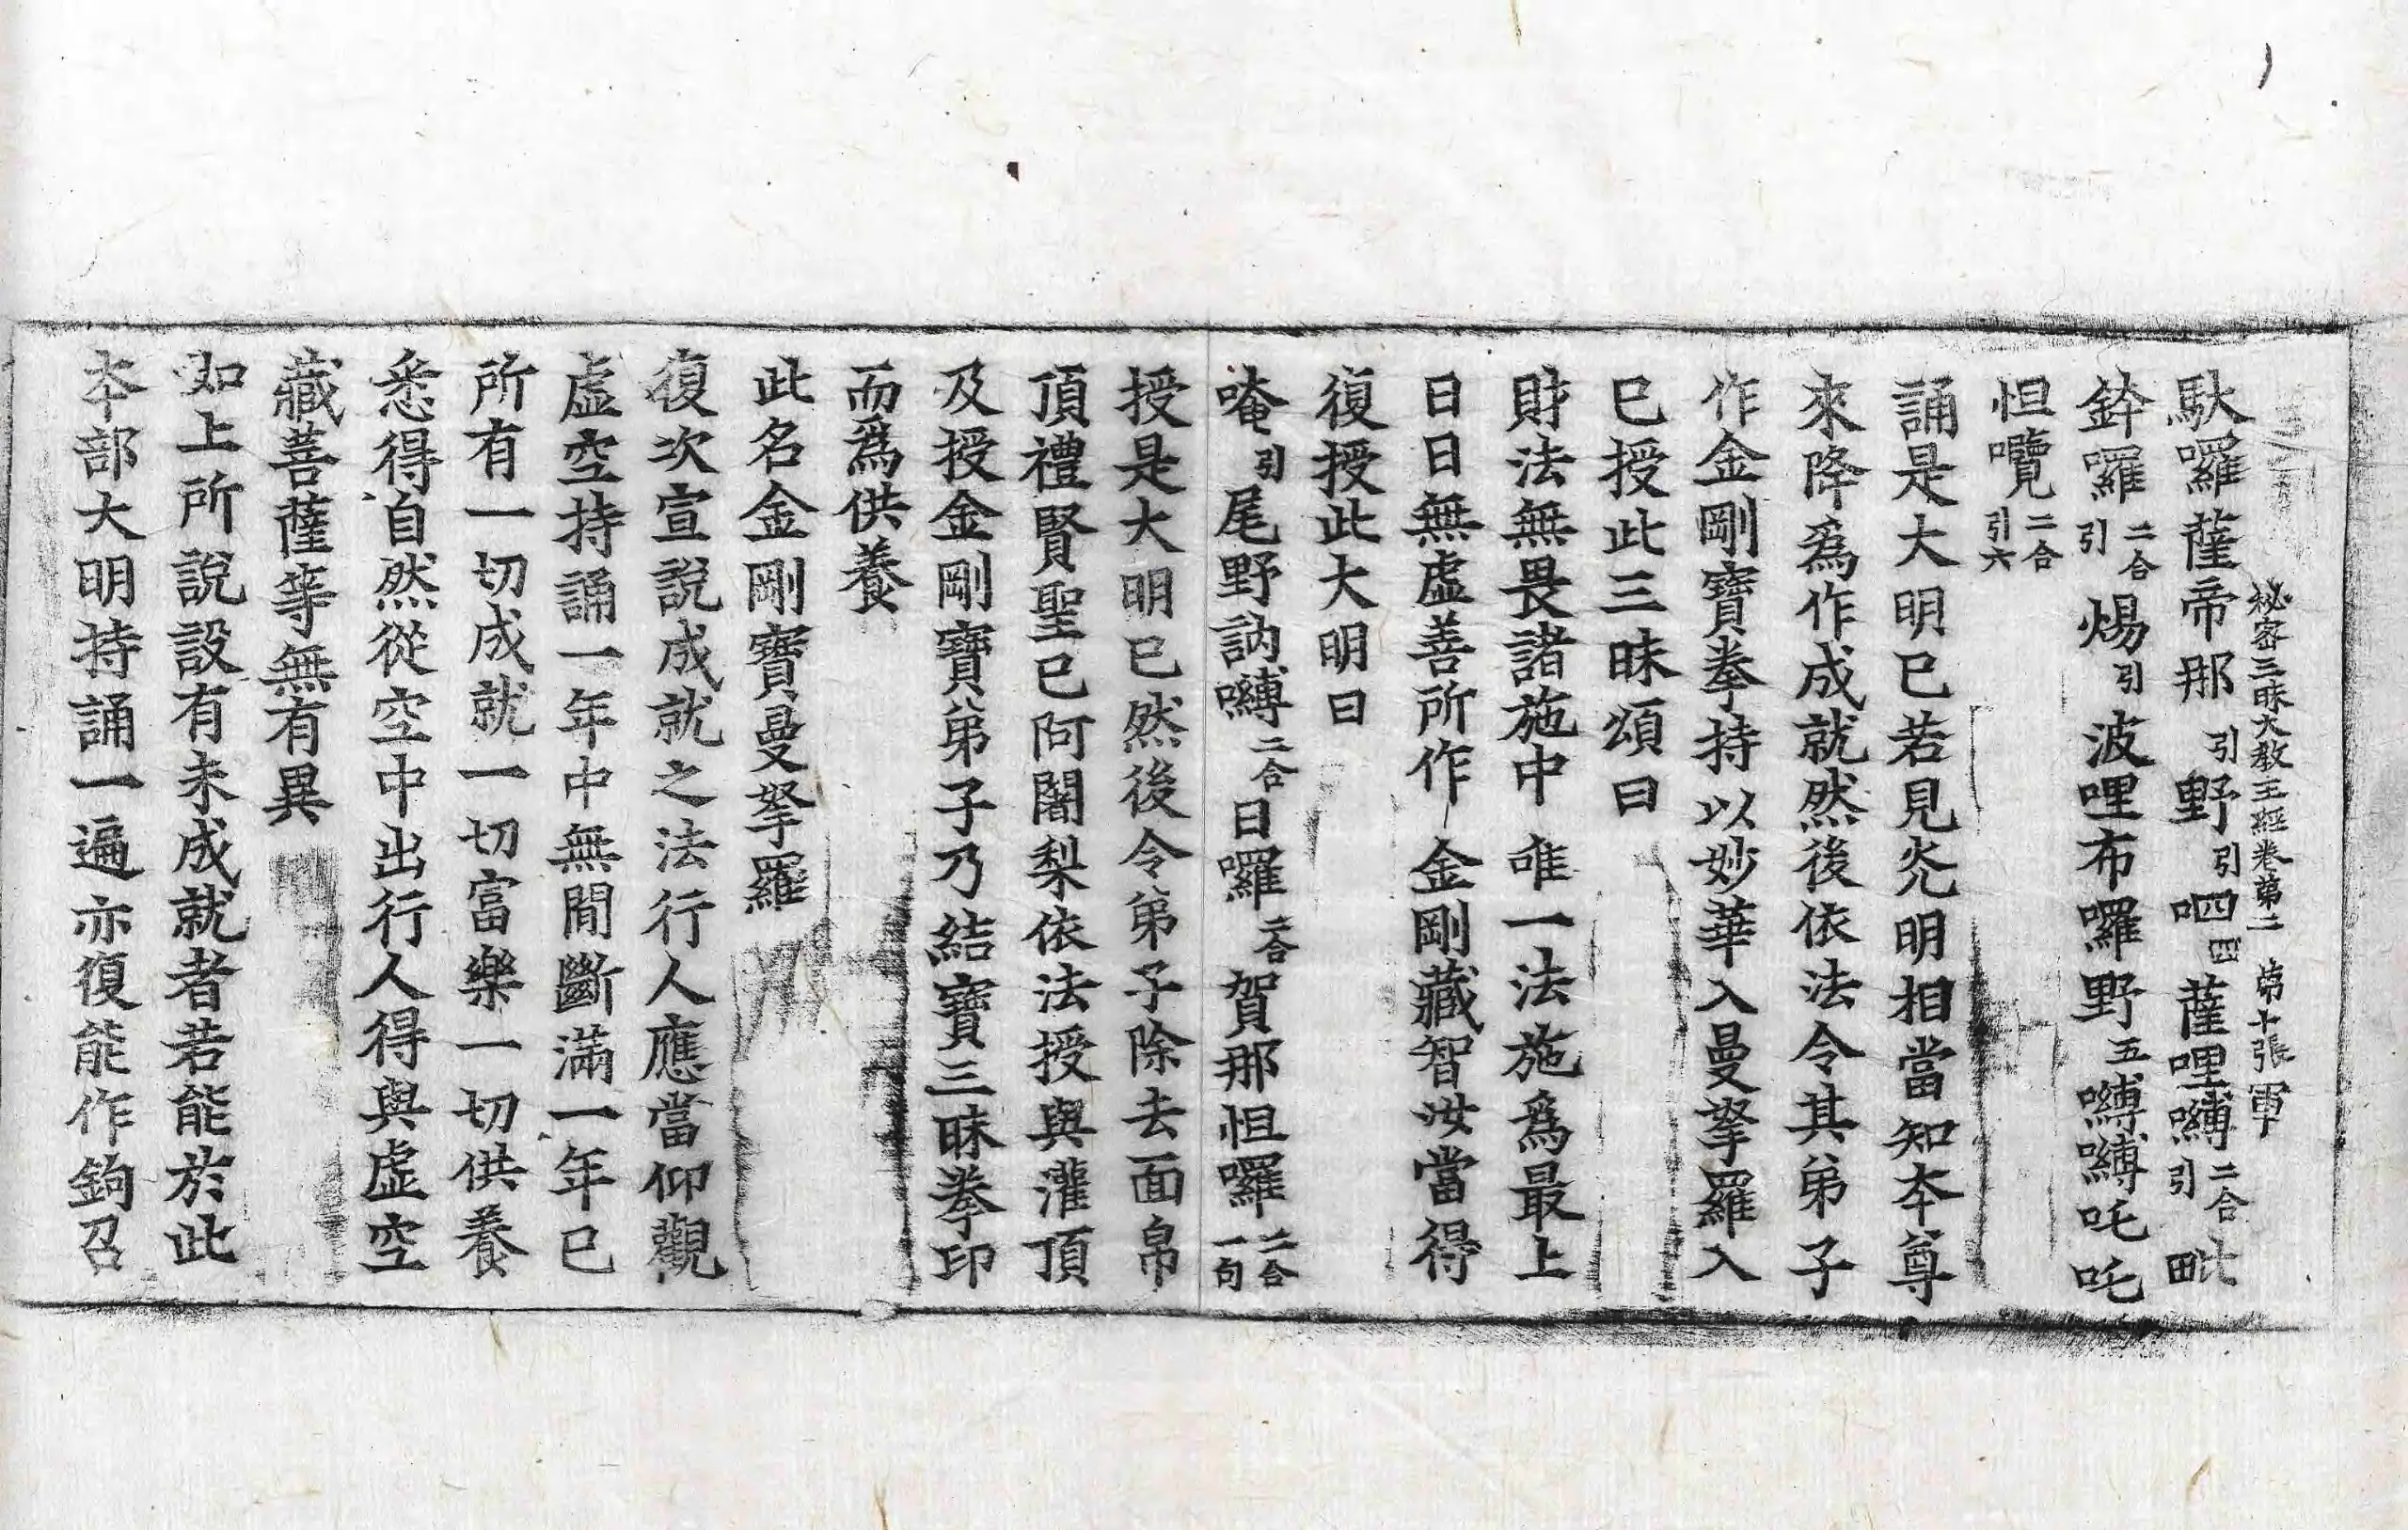 秘密三昧大教王經卷第二　第十張　軍
馱囉薩帝那引野引呬四薩哩嚩二合引毗
鉢囉二合引煬引波哩布囉野五嚩嚩吒吒
怛囕二合引六
誦是大明已若見光明相當知夲尊
來降爲作成就然後依法令其弟子
作金剛寶拳持以妙華入曼拏羅入
已授此三昧頌曰
財法無畏諸施中　唯一法施爲最上
日日無虛善所作　金剛藏智汝當得
復授此大明曰
唵引尾野訥嚩二合日囉二合賀那怛囉二合一句
授是大明已然後令弟子除去面帛
頂禮賢聖已阿闍梨依法授與灌頂
及授金剛寶弟子乃結寶三昧拳印
而爲供養
此名金剛寶曼拏羅
復次宣說成就之法行人應當仰觀
虛空持誦一年中無間斷滿一年已
所有一切成就一切富樂一切供養
悉得自然從空中出行人得與虛空
藏菩薩等無有異
如上所說設有未成就者若能於此
夲部大明持誦一遍亦復能作鉤召